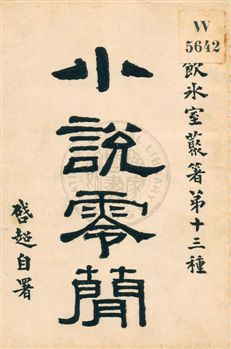 W
5642
飲氷室叢著第十三種
小說零簡
啓超自署